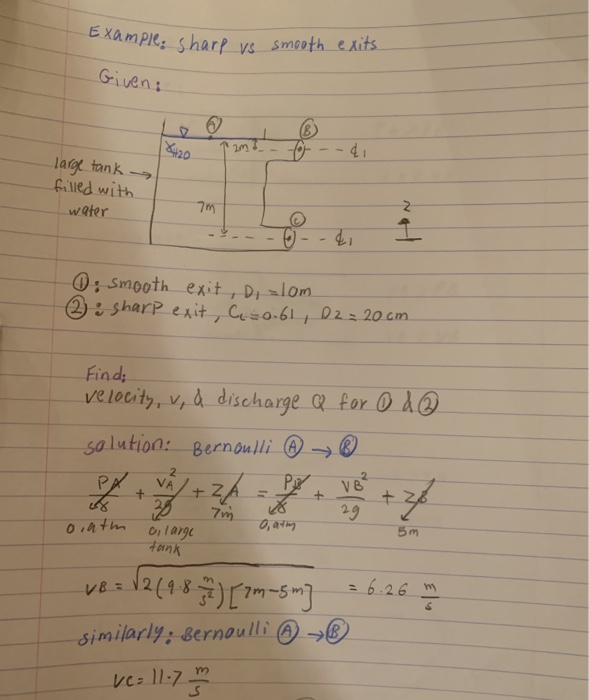 Example: sharp vs smooth exits
Given:
A
B
γH2O
2m
¢1
large tank →
filled with
water
7m
C
z
¢1
①: smooth exit, D1 = 10m
②: sharp exit, Cc = 0.61, D2 = 20 cm
Find:
velocity, v, & discharge Q for ① & ②
solution: Bernoulli Ⓐ → Ⓑ
PA/γ + VA²/2g + ZA = PB/γ + VB²/2g + ZB
0, atm 0, large tank 7m 0, atm 5m
VB = √2(9.8 m/s²)[7m-5m] = 6.26 m/s
similarly: Bernoulli Ⓐ → Ⓑ
VC = 11.7 m/s